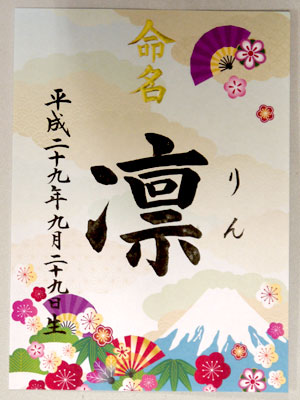 命名
凛
りん
平成二十九年九月二十九日生